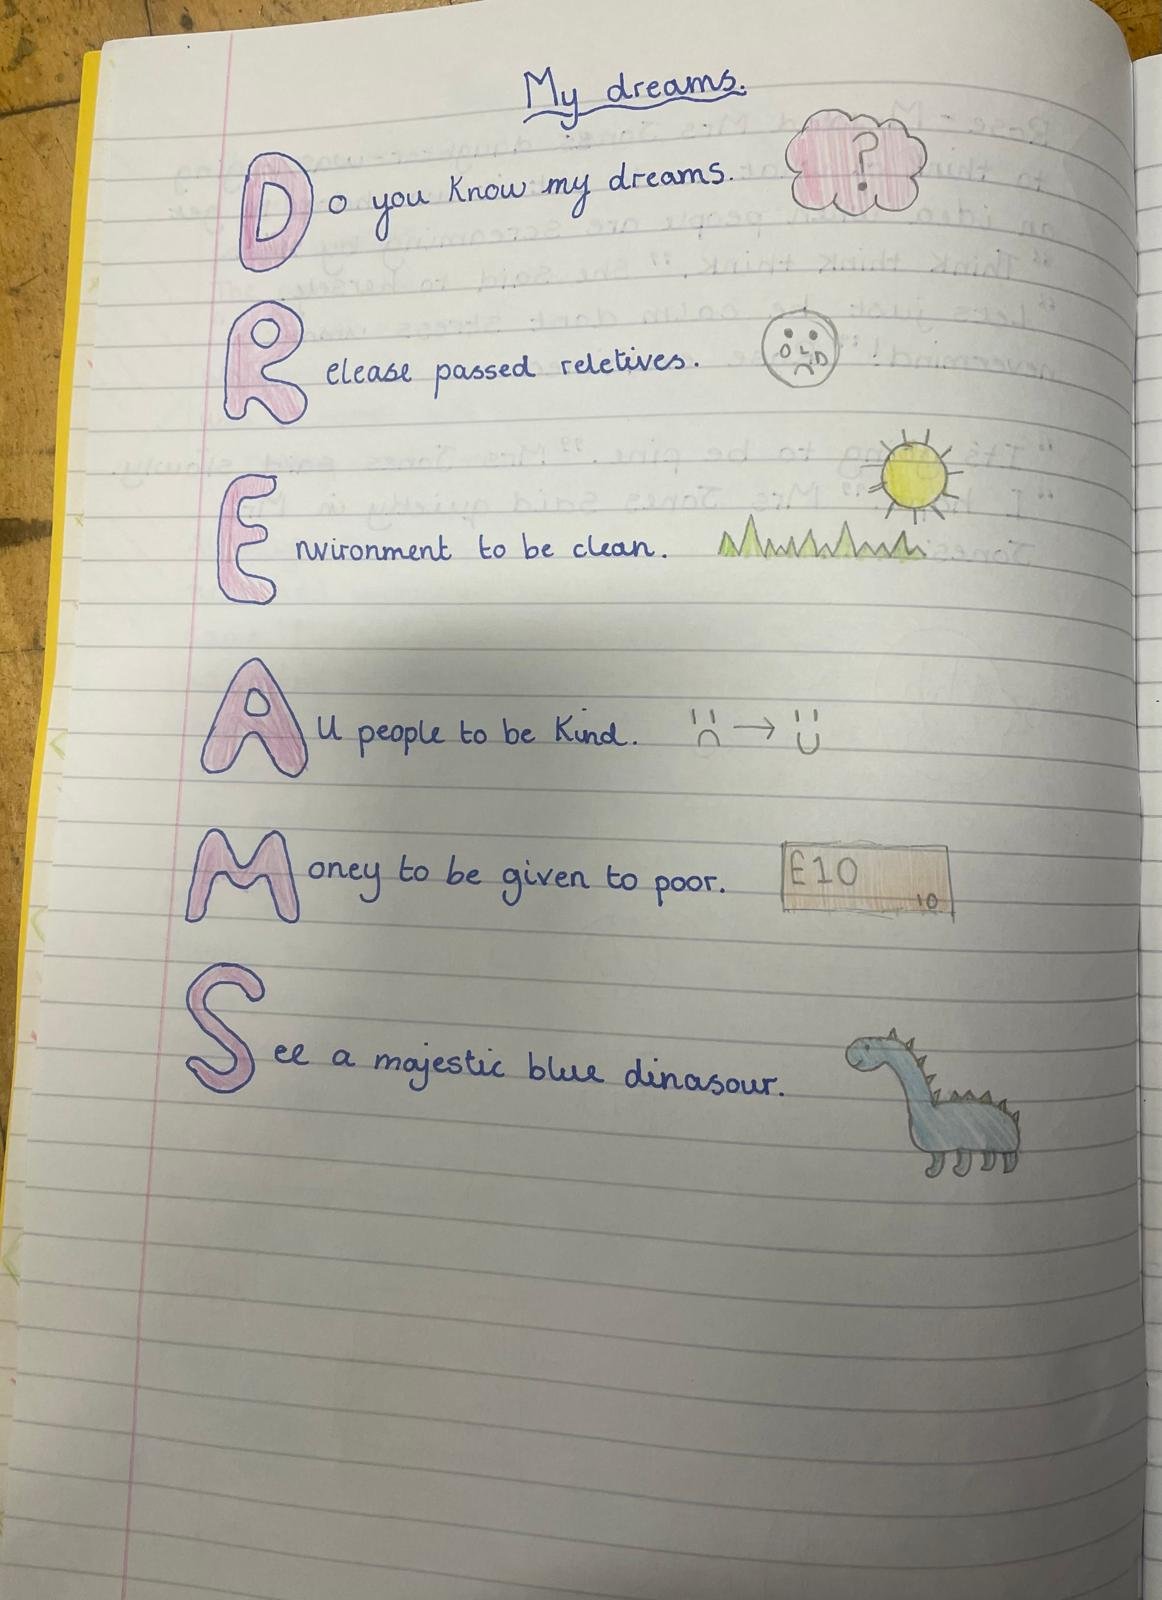 My dreams.
Do you know my dreams. ?
Release passed reletives. OLD
Environment to be clean.
All people to be kind.
Money to be given to poor. £10 10
See a majestic blue dinasour.